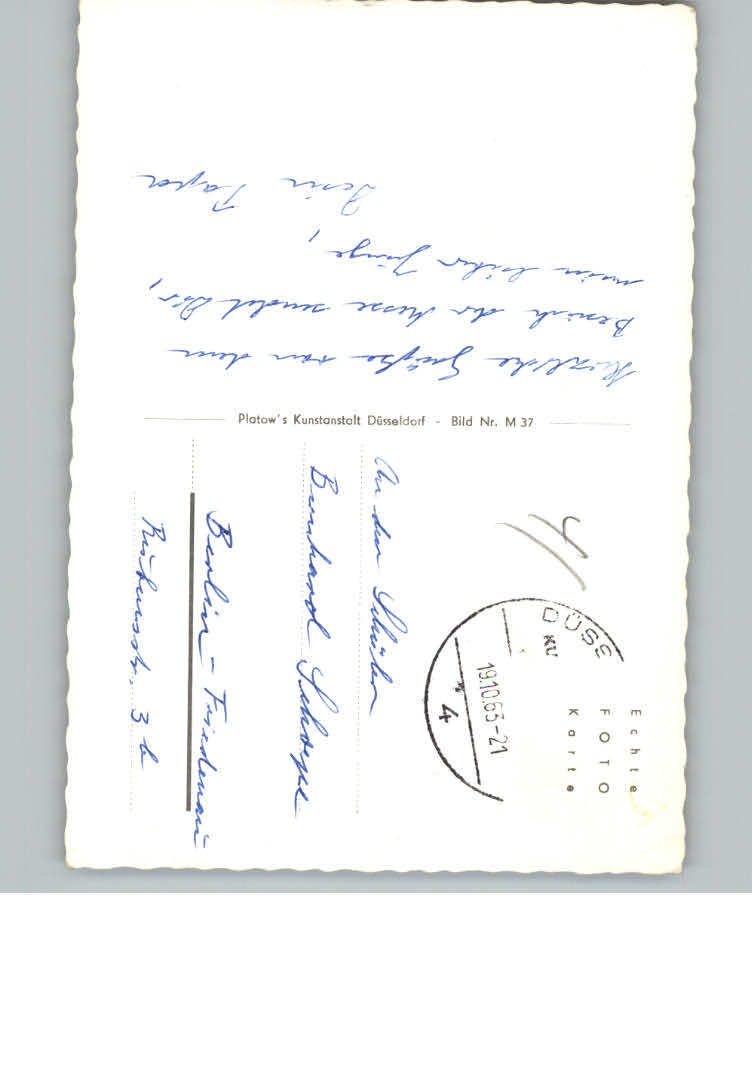 Herzliche Grüße von dem
Besuch der Messe sendet Dir,
mein lieber Junge,
Dein Papa
Platow's Kunstanstalt Düsseldorf - Bild Nr. M 37
An den Schüler
Bernhard
Berlin-Friedenau
3 b
DÜSS
KU
19.10.63-21
* 4
Echte
FOTO
Karte